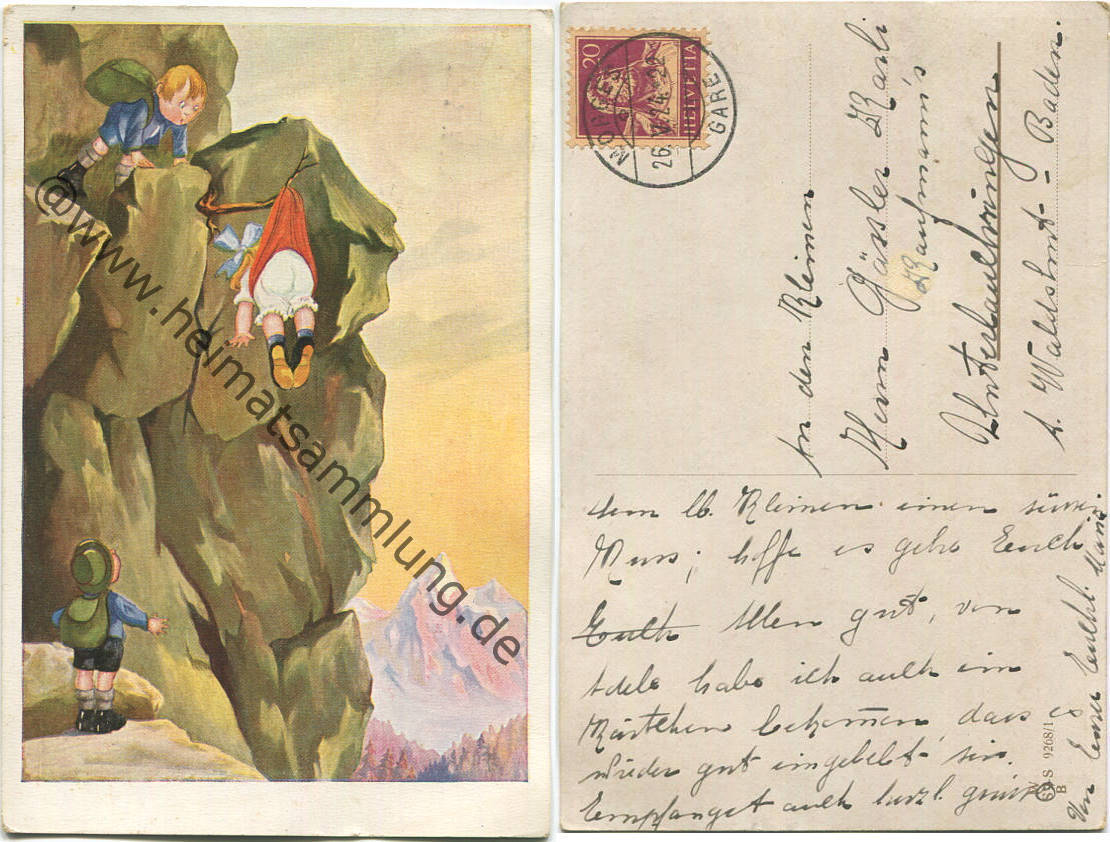 @www.heimatsammlung.de
20
HELVETIA
MORGES
26. V. 24.-22
GARE
An den Kleinen
Herrn Gässler Karli
Kaufmann's
Unterlauchringen
A. Waldshut - Baden.
dem lb. Kleinen einen süssen
Muss; hoffe es gehe Euch
Euch Allen gut, von
Adele habe ich auch ein
Kärtchen bekommen, dass es
wieder gut eingelebt sei.
Empfanget auch herzl. grüsse
Von Eurer
S 9268/1
B